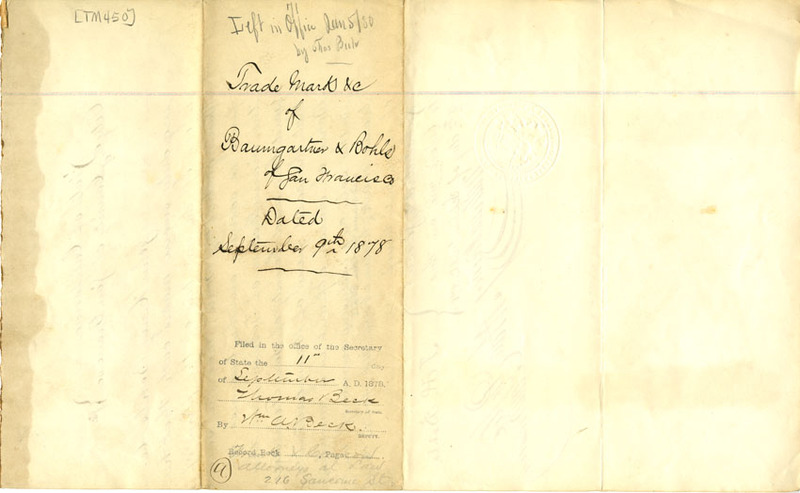 [TM450]
Left in Office Jan 5/80
by Thos Beck
Trade Mark &c
of
Baumgartner & Bohls
of San Francisco
Dated
September 9th 1878
Filed in the office of the Secretary
of State the 11th day
of September A. D. 1878.
Thomas Beck
Secretary of State.
By Wm A. Beck.
Deputy.
Record Book , Page
attorneys at Law
216 Sansome St
(a)